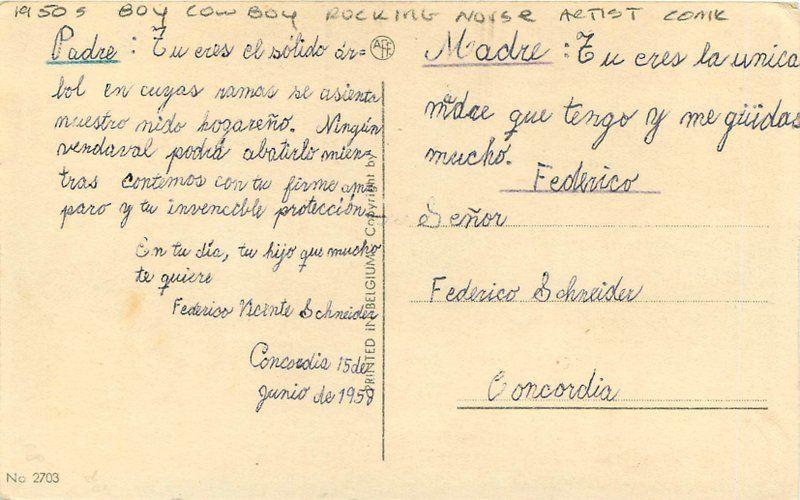 1950s BOY COW BOY ROCKING HORSE ARTIST COMIC
Padre : Tu eres el sólido ár=
bol en cuyas ramas se asienta
nuestro nido hogareño. Ningún
vendaval podrá abatirlo mien=
tras contemos con tu firme am=
paro y tu invencible protección
En tu día, tu hijo que mucho
te quiere
Federico Vicente Schneider
Concordia 15 de
Junio de 1958
No 2703
PRINTED IN BELGIUM Copyright by
Madre : Tu eres la unica
madre que tengo y me güidas
mucho.
Federico
Señor
Federico Schneider
Concordia